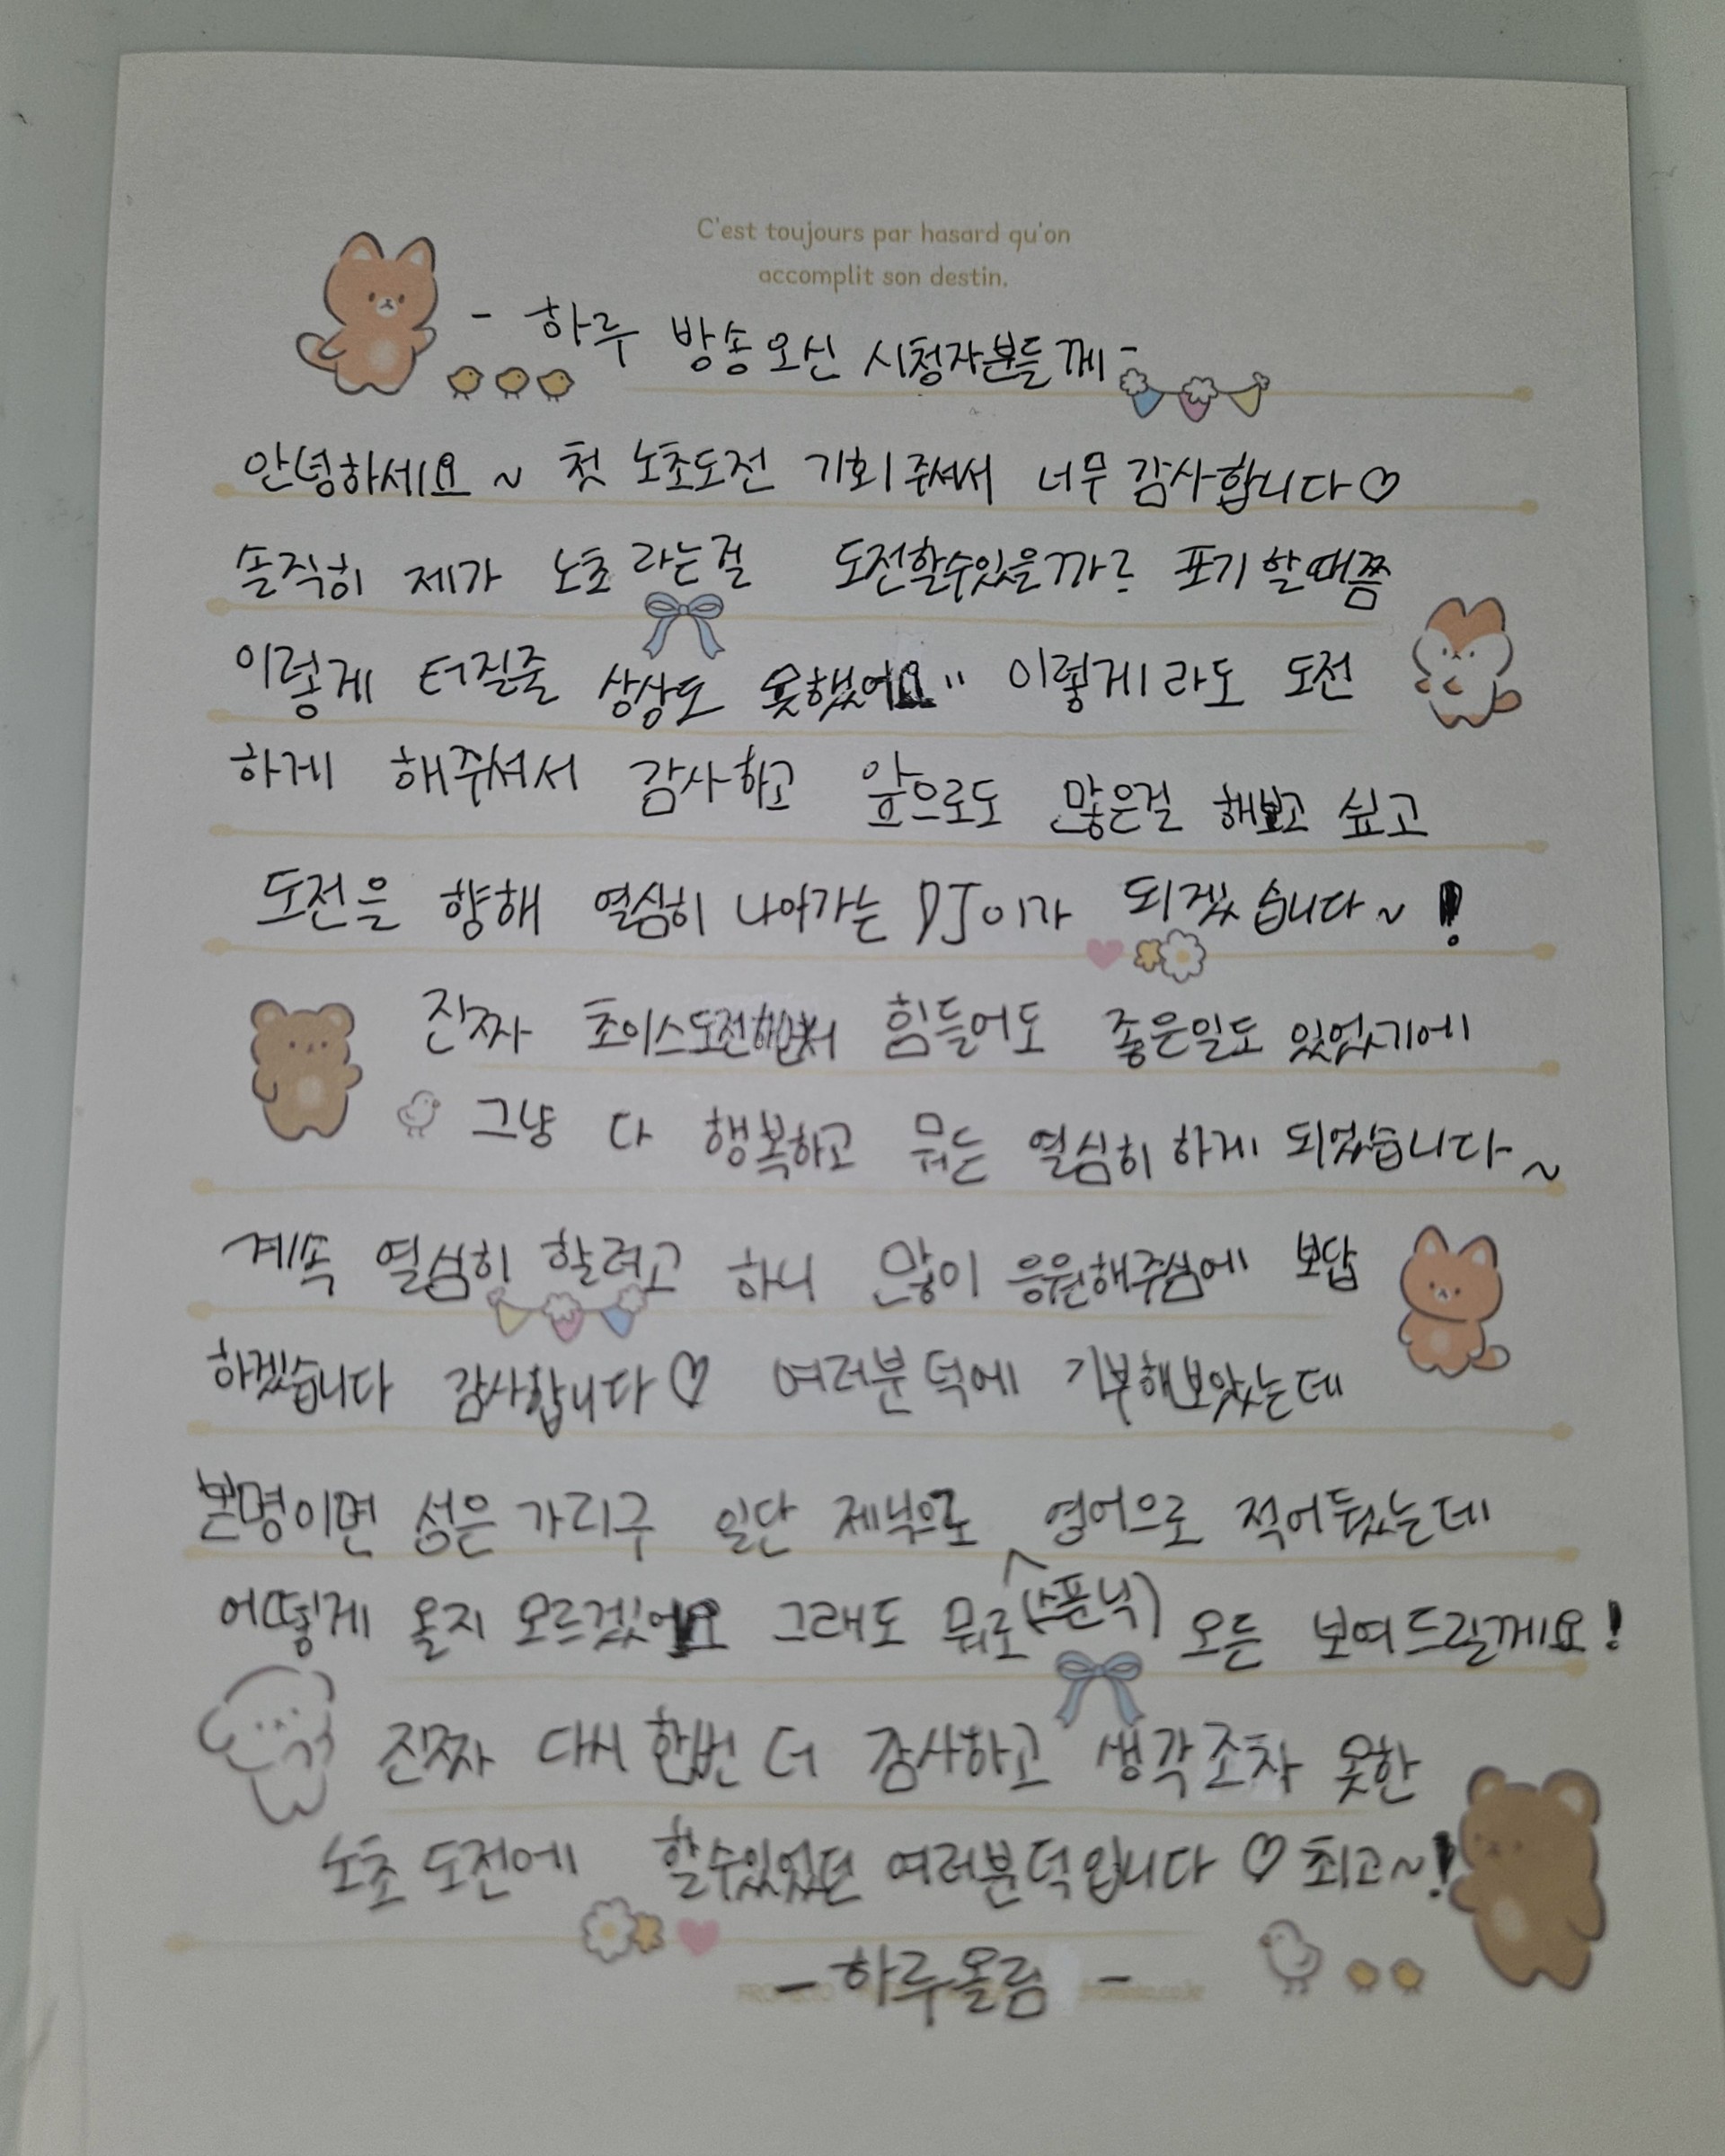 C'est toujours par hasard qu'on
accomplit son destin.
- 하루 방송오신 시청자분들께 -
안녕하세요 ~ 첫 노초도전 기회주셔서 너무 감사합니다♡
솔직히 제가 노초라는걸 도전할수있을까? 포기할때쯤
이렇게 터질줄 상상도 못했어요" 이렇게라도 도전
하게 해주셔서 감사하고 앞으로도 많은걸 해보고 싶고
도전을 향해 열심히 나아가는 DJ이가 되겠습니다~!
진짜 초이스도전하면서 힘들어도 좋은일도 있었기에
그냥 다 행복하고 뭐든 열심히 하게 되었습니다~
계속 열심히 할려고 하니 많이 응원해주심에 보답
하겠습니다 감사합니다♡ 여러분 덕에 기부해보았는데
본명이면 성은 가리구 일단 제닉으로 영어으로 적어뒀는데
(스푼닉)
어떻게 올지 모르겠어요 그래도 뭐로 오든 보여드릴께요!
진짜 다시 한번 더 감사하고 생각조차 못한
노초 도전에 할수있었던 여러분덕입니다♡ 최고~!
- 하루올림 -